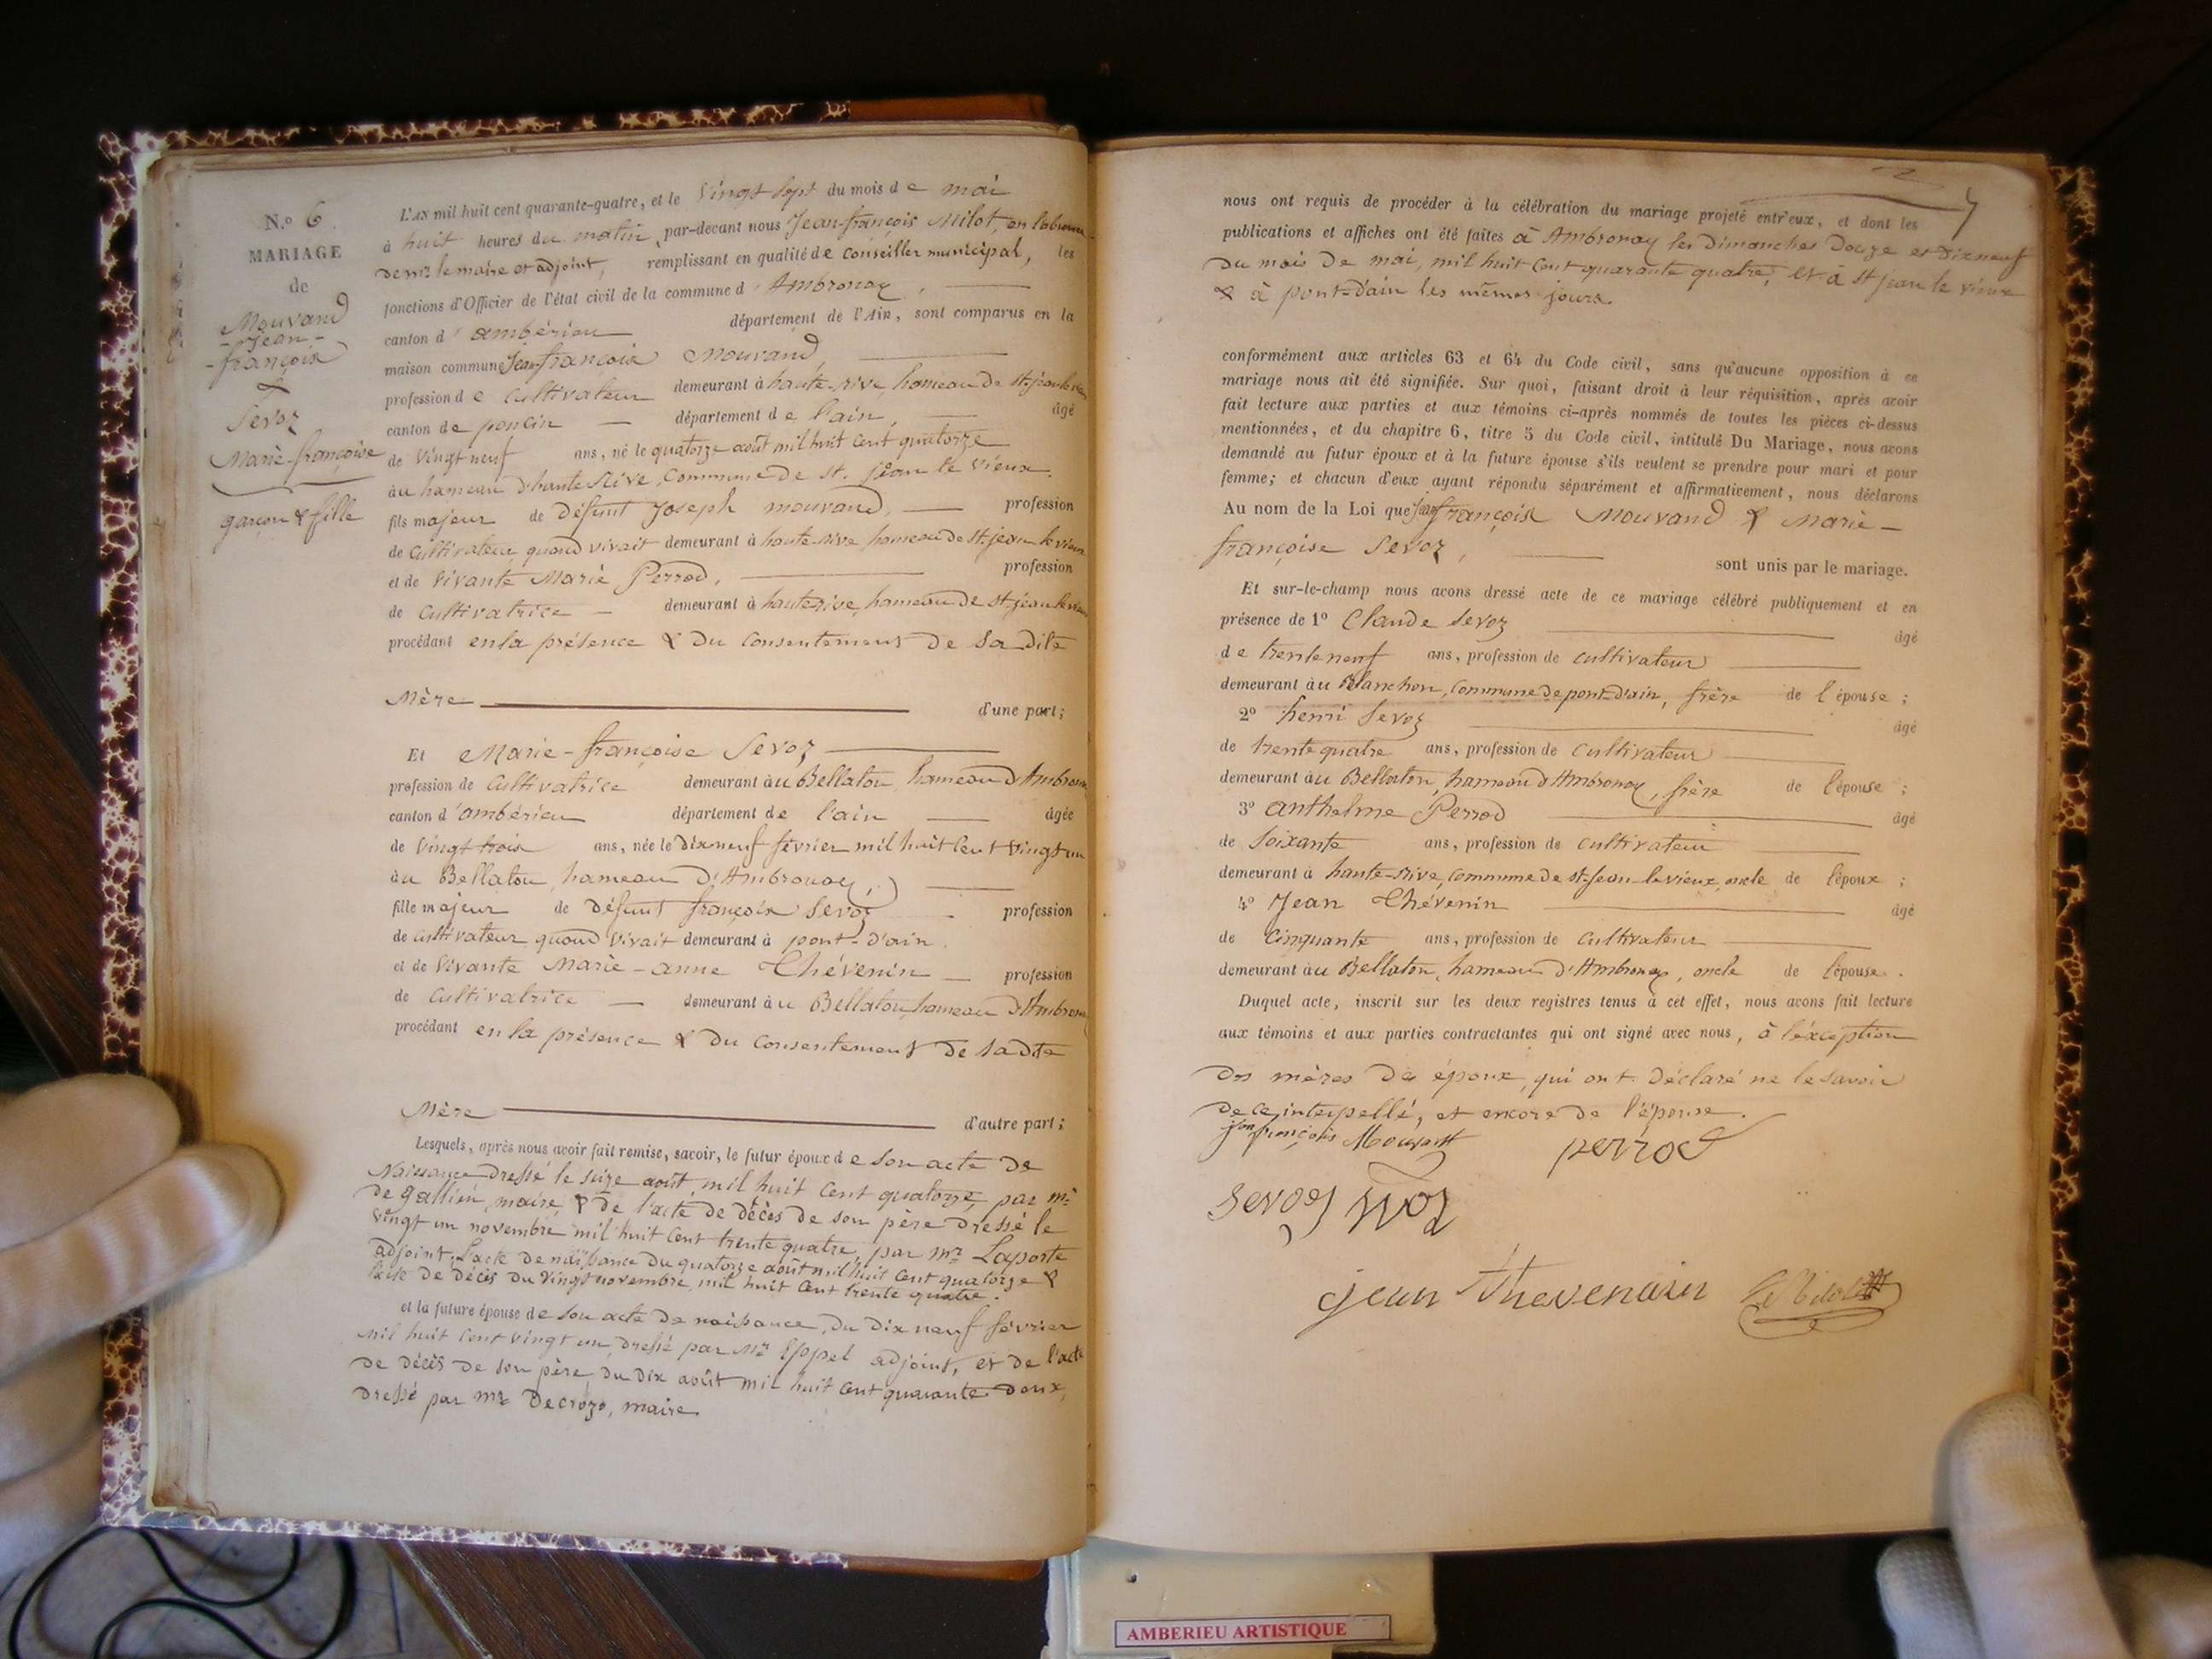 N.º 6
MARIAGE
de
Mouvand
- Jean -
- françois
&
Sevoz
Marie-françoise
garçon & fille
L'AN mil huit cent quarante-quatre, et le vingt sept du mois de mai
à huit heures du matin, par-devant nous Jean-françois Milot, en l'absence
de mr. le maire et adjoint, remplissant en qualité de conseiller municipal, les
fonctions d'Officier de l'état civil de la commune d'Ambronay,
canton d'ambérieu département de l'AIN, sont comparus en la
maison commune Jean françois Mouvand
profession de Cultivateur demeurant à haute-rive, hameau de St. jean le vieux
canton de poncin département de l'ain, âgé
de vingt neuf ans, né le quatorze août mil huit cent quatorze
au hameau d'haute Rive, Commune de St. jean le vieux.
fils majeur de Défunt Joseph mouvand, profession
de Cultivateur quand vivait demeurant à haute-rive hameau de St. jean le vieux
et de vivante Marie Perrod, profession
de Cultivatrice demeurant à haute-rive, hameau de St. jean le vieux
procédant en la présence & du consentement de Sa dite
Mère d'une part;
Et Marie-françoise Sevoz
profession de Cultivatrice demeurant au Bellaton, hameau d'Ambronay
canton d'ambérieu département de l'ain âgée
de vingt trois ans, née le Dix neuf février mil huit Cent vingt un
au Bellaton, hameau d'Ambronay,
fille majeur de Défunt françois Sevoz profession
de cultivateur quand vivait demeurant à pont-d'ain.
et de vivante Marie-anne Thévenin profession
de Cultivatrice demeurant au Bellaton, hameau d'Ambronay
procédant en la présence & du consentement de sadite
Mère d'autre part;
Lesquels, après nous avoir fait remise, savoir, le futur époux de son acte de
Naissance dressé le seize août mil huit Cent quatorze, par mr.
de gallien, maire, & de l'acte de décès de son père dressé le
vingt un novembre mil huit Cent trente quatre, par mr. Laporte
adjoint, L'acte de naissance du quatorze août mil huit Cent quatorze &
l'acte de décès du vingt novembre, mil huit Cent trente quatre.
et la future épouse de son acte de naissance, du Dix neuf février
mil huit Cent vingt un, dressé par Mr. Eppel adjoint, et de l'acte
de décès de son père, du Dix août mil huit Cent quarante-Deux,
Dressé par mr. Decrozo, maire
nous ont requis de procéder à la célébration du mariage projeté entr'eux, et dont les
publications et affiches ont été faites à Ambronay les Dimanches Douze et Dixneuf
Du mois de mai, mil huit Cent quarante quatre, et à St jean le vieux
& à pont-d'ain les mêmes jours
conformément aux articles 63 et 64 du Code civil, sans qu'aucune opposition à ce
mariage nous ait été signifiée. Sur quoi, faisant droit à leur réquisition, après avoir
fait lecture aux parties et aux témoins ci-après nommés de toutes les pièces ci-dessus
mentionnées, et du chapitre 6, titre 5 du Code civil, intitulé Du Mariage, nous avons
demandé au futur époux et à la future épouse s'ils veulent se prendre pour mari et pour
femme; et chacun d'eux ayant répondu séparément et affirmativement, nous déclarons
Au nom de la Loi que Jean françois Mouvand & Marie-
françoise Sevoz, sont unis par le mariage.
Et sur-le-champ nous avons dressé acte de ce mariage célébré publiquement et en
présence de 1º Claude Sevoz âgé
de trente neuf ans, profession de cultivateur
demeurant au Blanchon, Commune de pont-d'ain, frère de l'épouse;
2º henri Sevoz âgé
de trente quatre ans, profession de Cultivateur
demeurant au Bellaton, hameau d'Ambronay, frère de l'épouse;
3º anthelme Perrod âgé
de Soixante ans, profession de Cultivateur
demeurant à haute-rive, Commune de St-Jean-le-vieux, oncle de l'époux;
4º Jean Thévenin âgé
de Cinquante ans, profession de Cultivateur
demeurant au Bellaton, hameau d'Ambronay, oncle de l'épouse.
Duquel acte, inscrit sur les deux registres tenus à cet effet, nous avons fait lecture
aux témoins et aux parties contractantes qui ont signé avec nous, à l'éxception
Des mères des époux, qui ont déclaré ne le savoir
de ce interpellé, et encore de l'épouse.
jean françois Mouvant perrod
sevoz sevoz
jean thevenain
AMBERIEU ARTISTIQUE